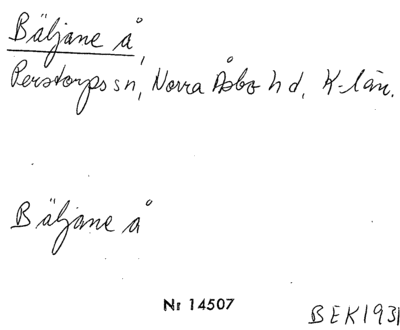 Bäljane å,
Perstorps sn, Norra Åsbo hd, K-län.
Bäljane å
Nr 14507
BEK 1931